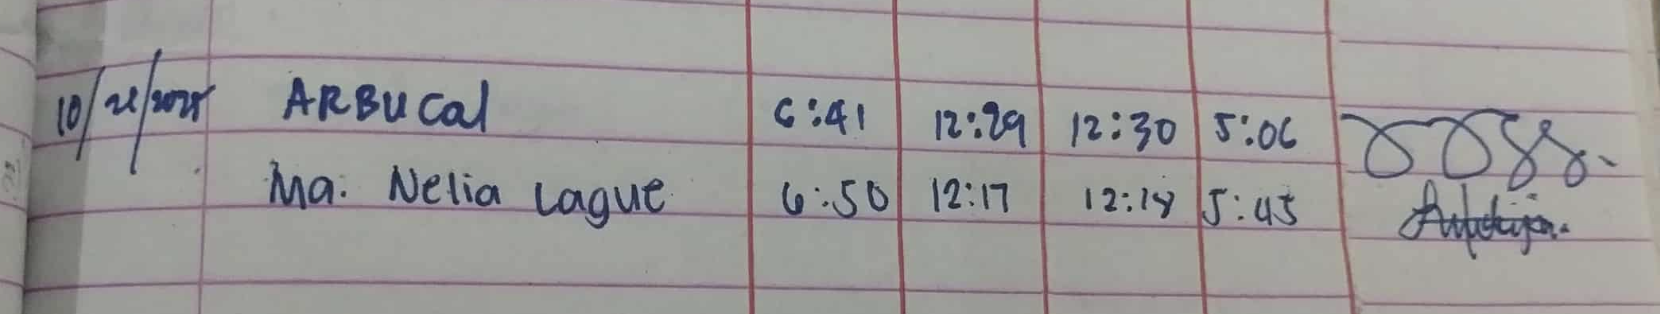 ARBUCal 6:41 12:29 12:30 5:06
Ma. Nelia Lague 6:50 12:17 12:18 5:45